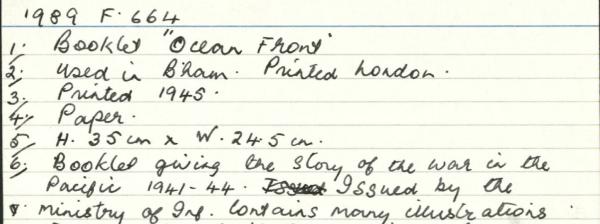 1989 F. 664
1. Booklet "Ocean Front"
2. Used in B'ham. Printed London.
3. Printed 1945.
4. Paper.
5. H. 35 cm x W. 24.5 cm.
6. Booklet giving the story of the war in the
Pacific 1941-44. Issued Issued by the
ministry of Inf. Contains many illustrations.